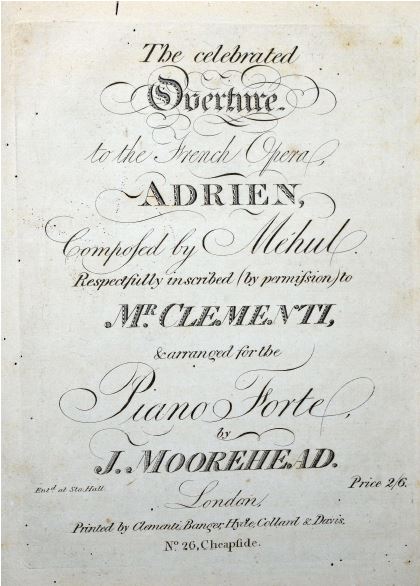 The celebrated
Overture.
to the French Opera,
ADRIEN,
Compoſed by Méhul.
Respectfully inscribed (by permiſsion) to
MR. CLEMENTI,
& arranged for the
Piano Forte,
by
J. MOOREHEAD.
Entd. at Sta. Hall.
Price 2/6.
London,
Printed by Clementi, Banger, Hyde, Collard & Davis,
No. 26, Cheapſide.